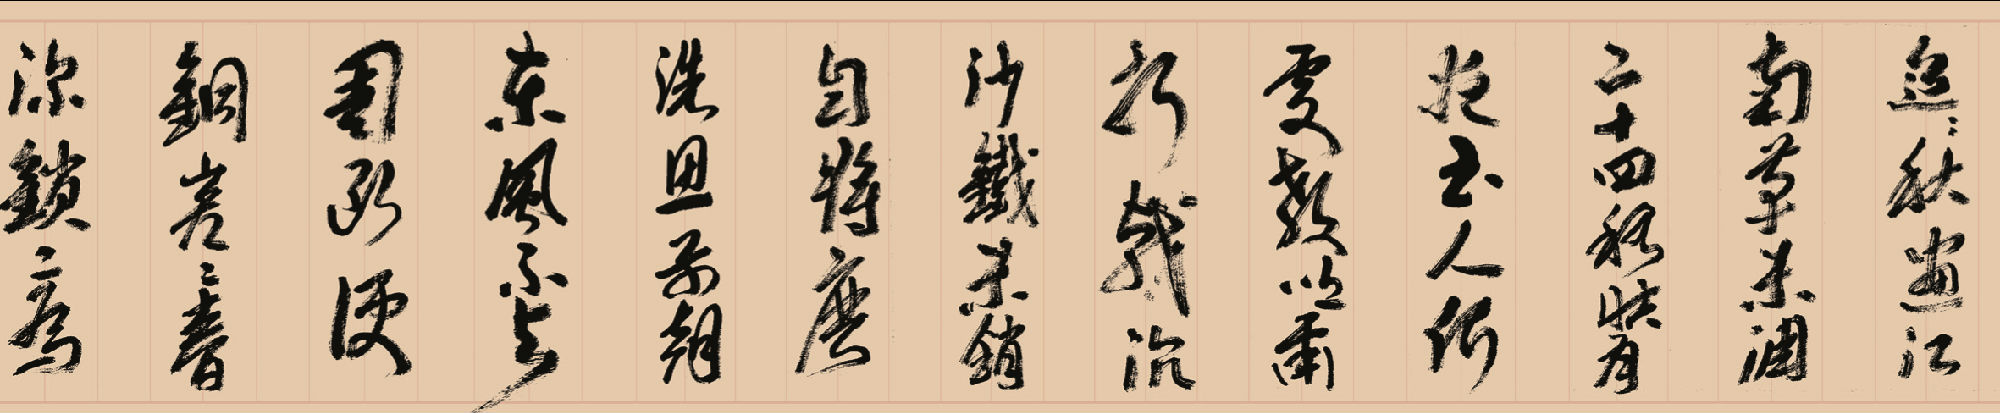 迢〻秋盡江
南草未凋
二十四橋明月
夜玉人何
處教吹簫
折戟沉
沙鐵未銷
自將磨
洗認前朝
東風不與
周郎便
銅雀〻春
深鎖二喬